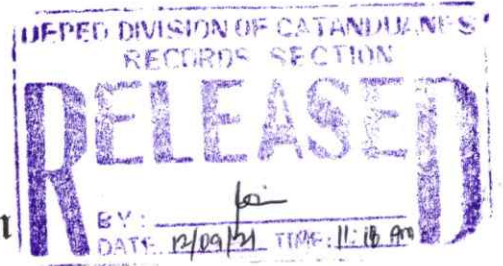 DEPED DIVISION OF CATANDUANES
RECORDS SECTION
RELEASED
BY:
DATE: 12/09/21 TIME: 11:18 AM